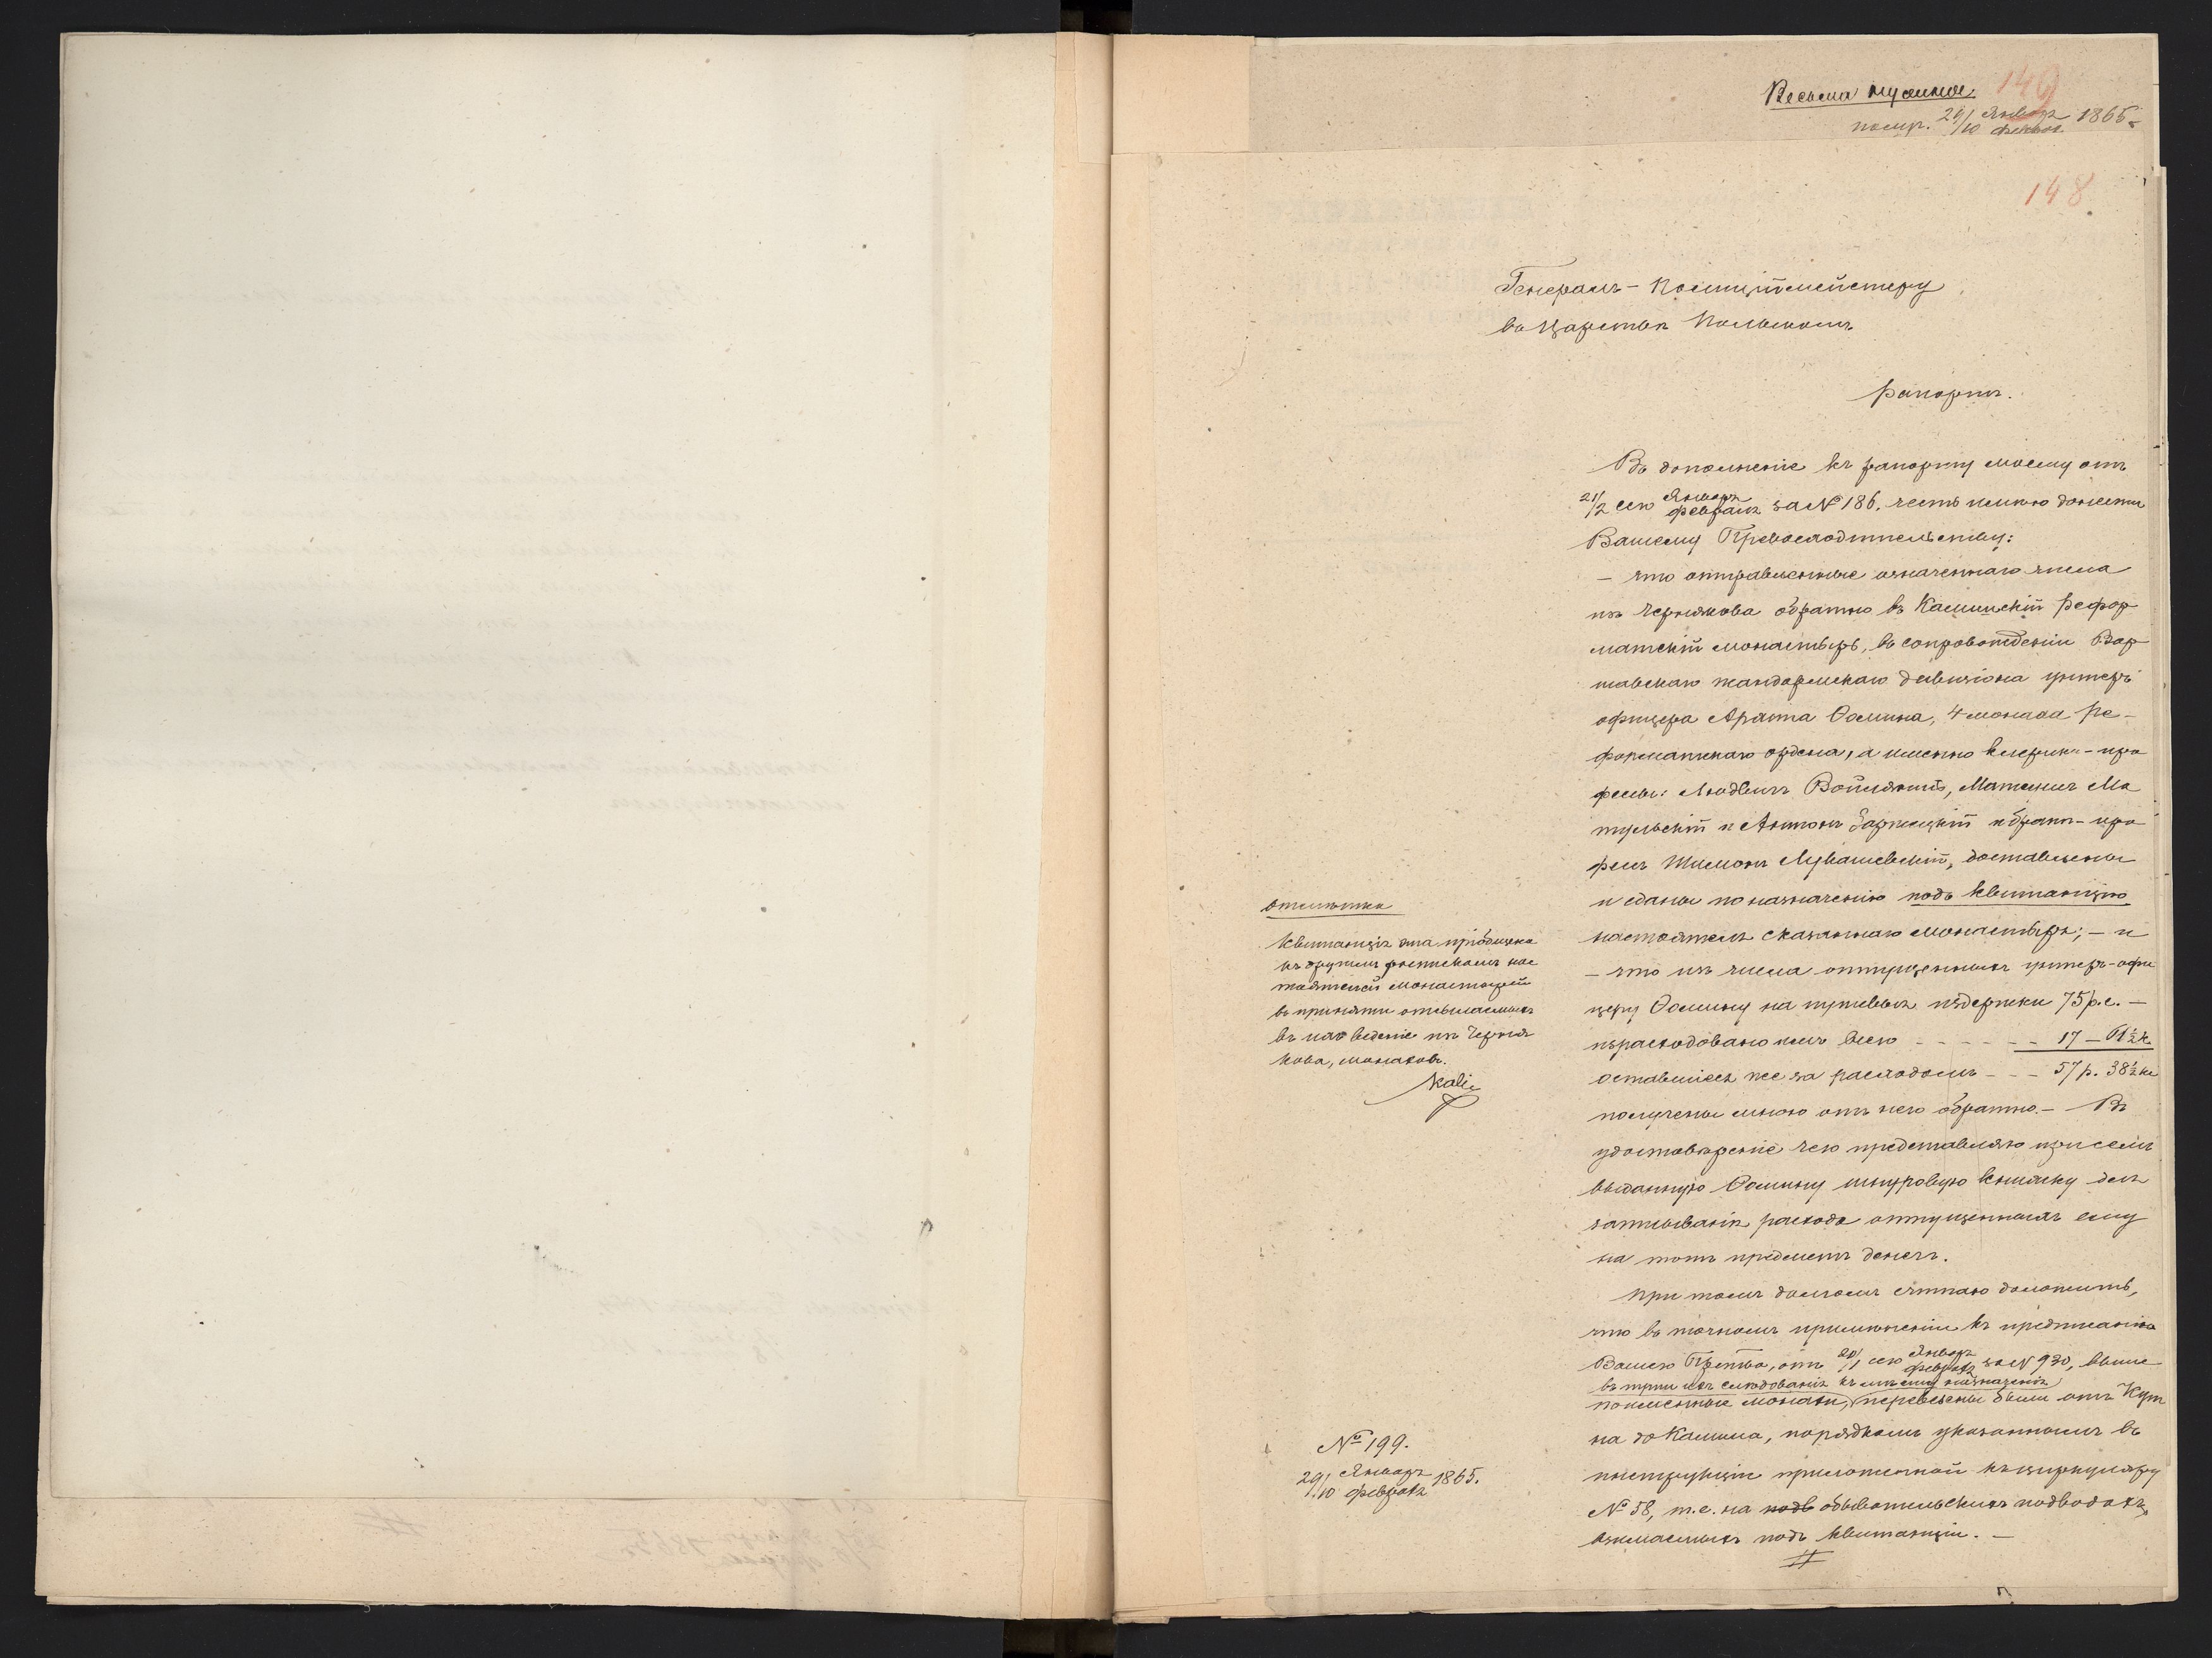 Весьма нужное.
149
полур. 29/10 Января/Феврал. 1865.
148
Генералъ-Полиціймейстеру
въ Царствѣ Польскомъ
Рапортъ.
Въ дополненіе къ рапорту моему отъ
21/2 сего Января/Февраля за № 186. честь имѣю донести
Вашему Превосходительству:
— что отправленные означеннаго числа
изъ Чернякова обратно въ Калишскій Рефор
матскій монастырь, въ сопровожденіи Вар
шавскаго жандармскаго дивизіона унтеръ
офицера Фомина, 4 монаха Ре-
форматскаго ордена, а именно клерики-про
фесы: Людвигъ Матеушъ Ма
тульскій и Антонъ и братъ-про
фесъ Шимонъ Лукашевскій, доставлены
и сданы по назначенію подъ квитанцію
настоятеля сказаннаго монастыря; — и
— что изъ числа отпущенныхъ унтеръ-офи
церу Фомину на путевыя издержки 75 р.с. —
израсходовано имъ всего - - - - - - 17 — 61½ к.
оставшіеся же за расходомъ - - - 57 р. 38½ к
получены мною отъ него обратно. — Въ
удостовѣреніе чего представляю при семъ
выданную Фомину шнуровую книжку для
записыванія расхода отпущенныхъ ему
на тотъ предметъ денегъ.
При томъ долгомъ считаю доложить,
что въ точномъ примѣненіи къ предписанію
Вашего Прства, отъ 20/1 сего Января/Февраля за № 930, выше
въ пути ихъ слѣдованія къ мѣсту назначенія
поименные монахи, перевезены были отъ Кут
на до Калиша, порядкомъ указаннымъ въ
инструкціи приложенной къ циркуляру
№ 58, т.е. на подв обывательскихъ подводахъ,
взимаемыхъ подъ квитанціи. —
Отмѣтка
Квитанція эта пріобщена
къ другимъ роспискамъ нас
тоятелей монастырей
въ принятіи отсылаемыхъ
въ ихъ веденіе изъ Черня
кова, монаховъ.
№ 199.
29/10 Января/Февраля 1865.